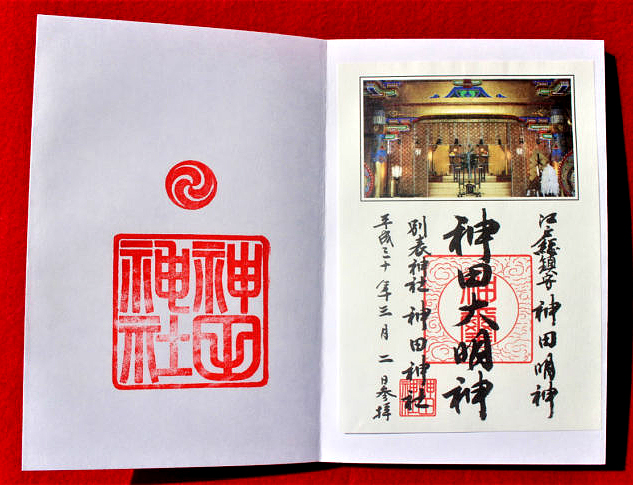 江戸総鎮守 神田明神
神田大明神
別表神社 神田神社
平成三十年三月二日参拝
神田
神社